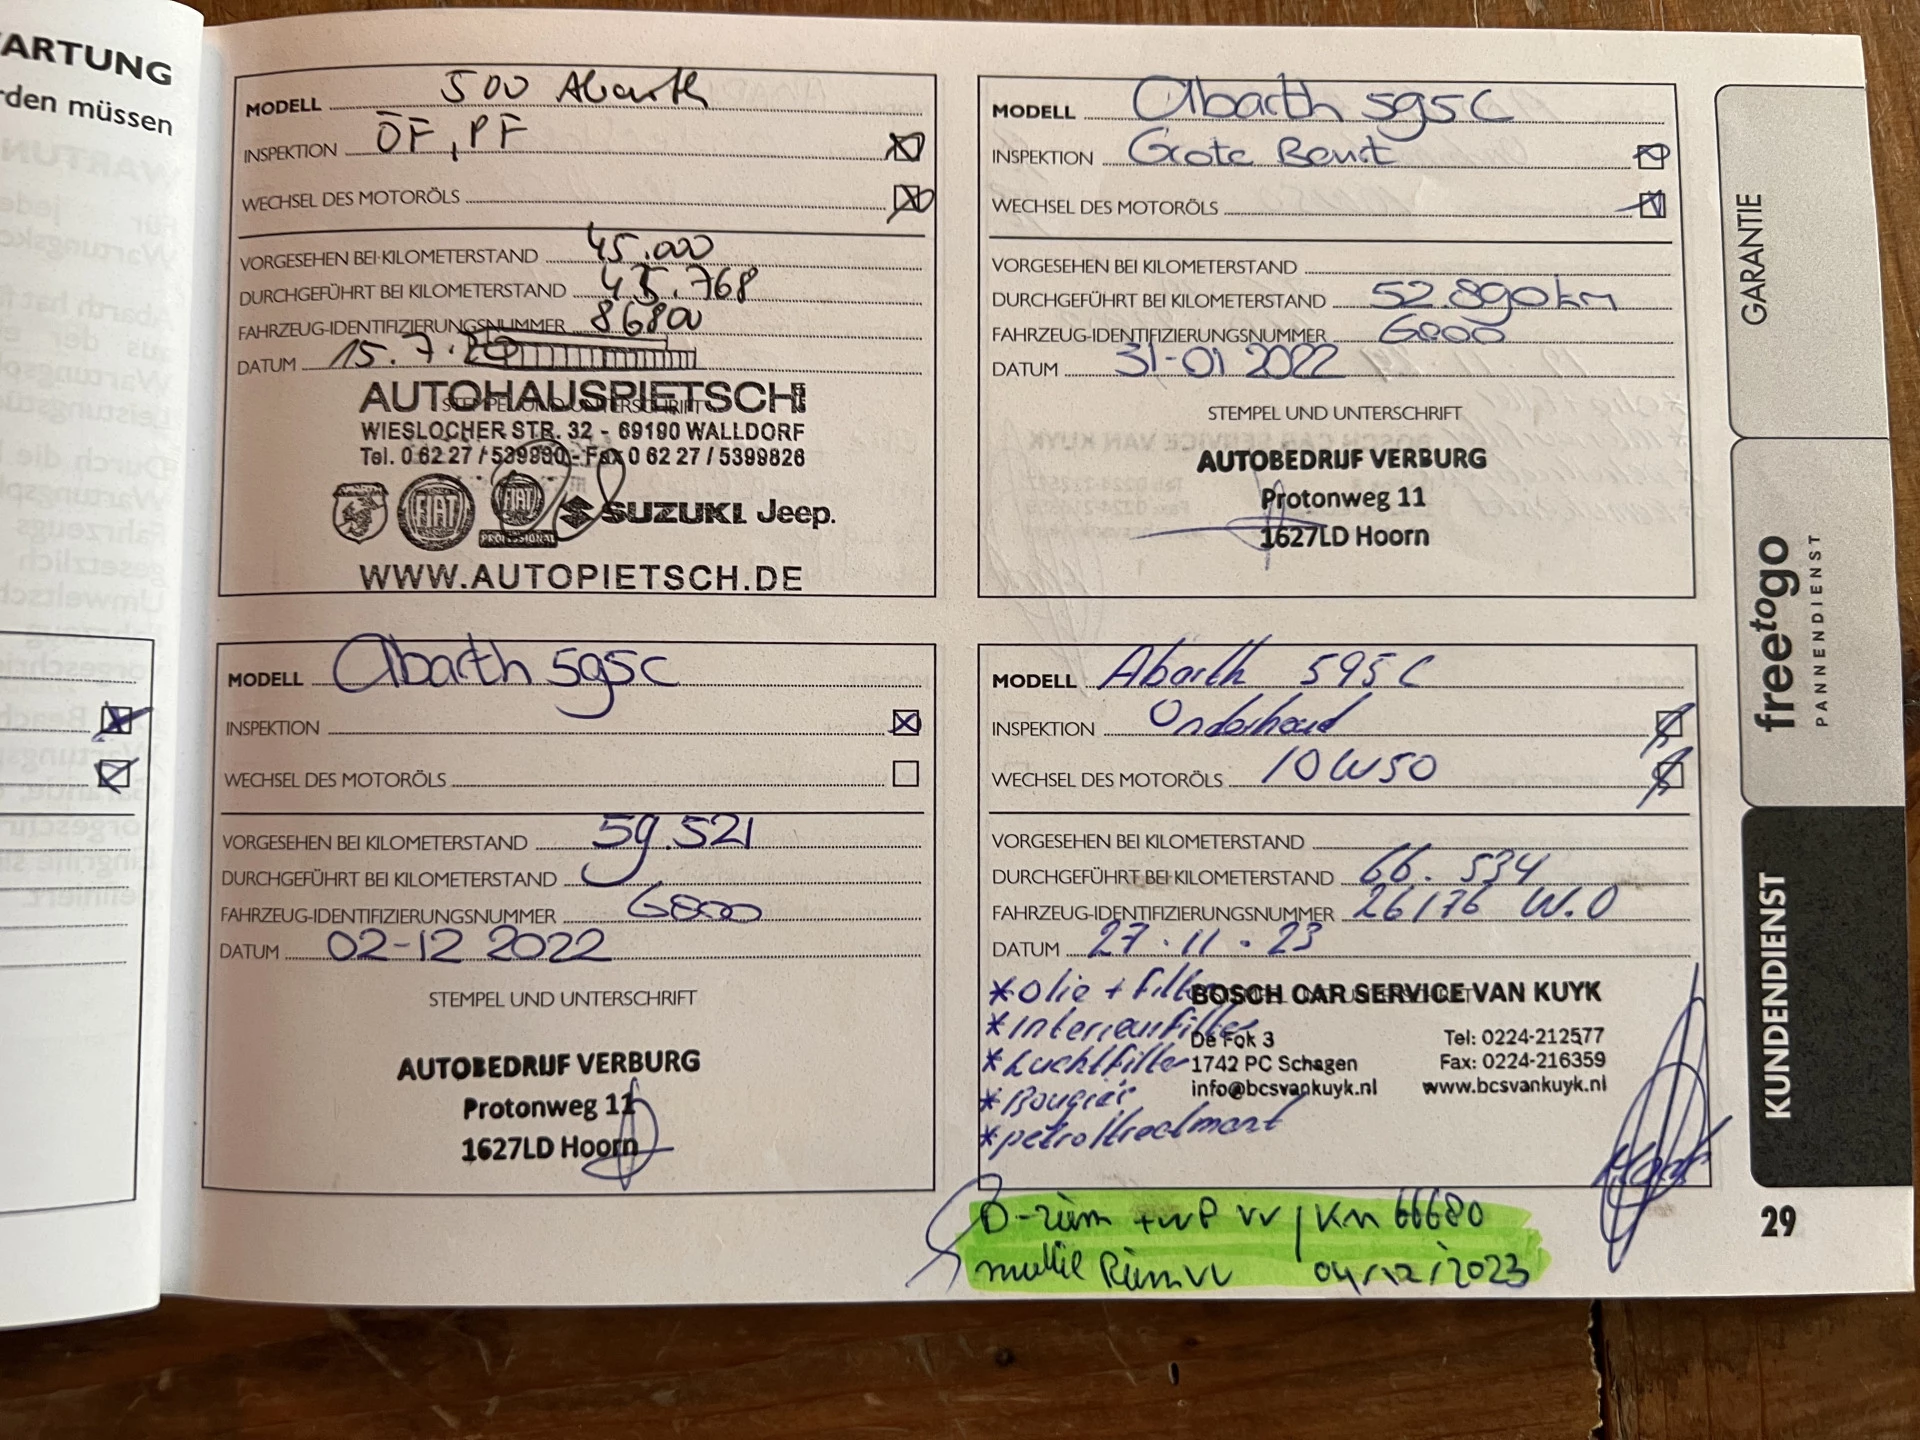 WARTUNG
rden müssen
MODELL 500 Abarth
INSPEKTION ÖF, PF
WECHSEL DES MOTORÖLS
VORGESEHEN BEI KILOMETERSTAND 45.000
DURCHGEFÜHRT BEI KILOMETERSTAND 45.768
FAHRZEUG-IDENTIFIZIERUNGSNUMMER 86800
DATUM 15.7.20
STEMPEL UND UNTERSCHRIFT
AUTOHAUSPIETSCH
WIESLOCHER STR. 32 - 69190 WALLDORF
Tel. 0 62 27 / 539980 - Fax 0 62 27 / 5399826
FIAT FIAT PROFESSIONAL SUZUKI Jeep.
WWW.AUTOPIETSCH.DE
MODELL Abarth 595C
INSPEKTION Grote Beurt
WECHSEL DES MOTORÖLS
VORGESEHEN BEI KILOMETERSTAND
DURCHGEFÜHRT BEI KILOMETERSTAND 52.890km
FAHRZEUG-IDENTIFIZIERUNGSNUMMER
DATUM 31-01 2022
STEMPEL UND UNTERSCHRIFT
AUTOBEDRIJF VERBURG
Protonweg 11
1627LD Hoorn
MODELL Abarth 595C
INSPEKTION
WECHSEL DES MOTORÖLS
VORGESEHEN BEI KILOMETERSTAND 59.521
DURCHGEFÜHRT BEI KILOMETERSTAND
FAHRZEUG-IDENTIFIZIERUNGSNUMMER
DATUM 02-12 2022
STEMPEL UND UNTERSCHRIFT
AUTOBEDRIJF VERBURG
Protonweg 11
1627LD Hoorn
MODELL Abarth 595 C
INSPEKTION Onderhoud
WECHSEL DES MOTORÖLS 10W50
VORGESEHEN BEI KILOMETERSTAND
DURCHGEFÜHRT BEI KILOMETERSTAND 66.534
FAHRZEUG-IDENTIFIZIERUNGSNUMMER 26176 W.O
DATUM 27.11.23
* Olie + filter
* Interieurfilter
* Luchtfilter
* Bougies
* petroltreatment
BOSCH CAR SERVICE VAN KUYK
De Fok 3 Tel: 0224-212577
1742 PC Schagen Fax: 0224-216359
info@bcsvankuyk.nl www.bcsvankuyk.nl
D-riem + WP vv / Km 66680
multie Riem vv 04/12/2023
GARANTIE
freetogo
PANNENDIENST
KUNDENDIENST
29